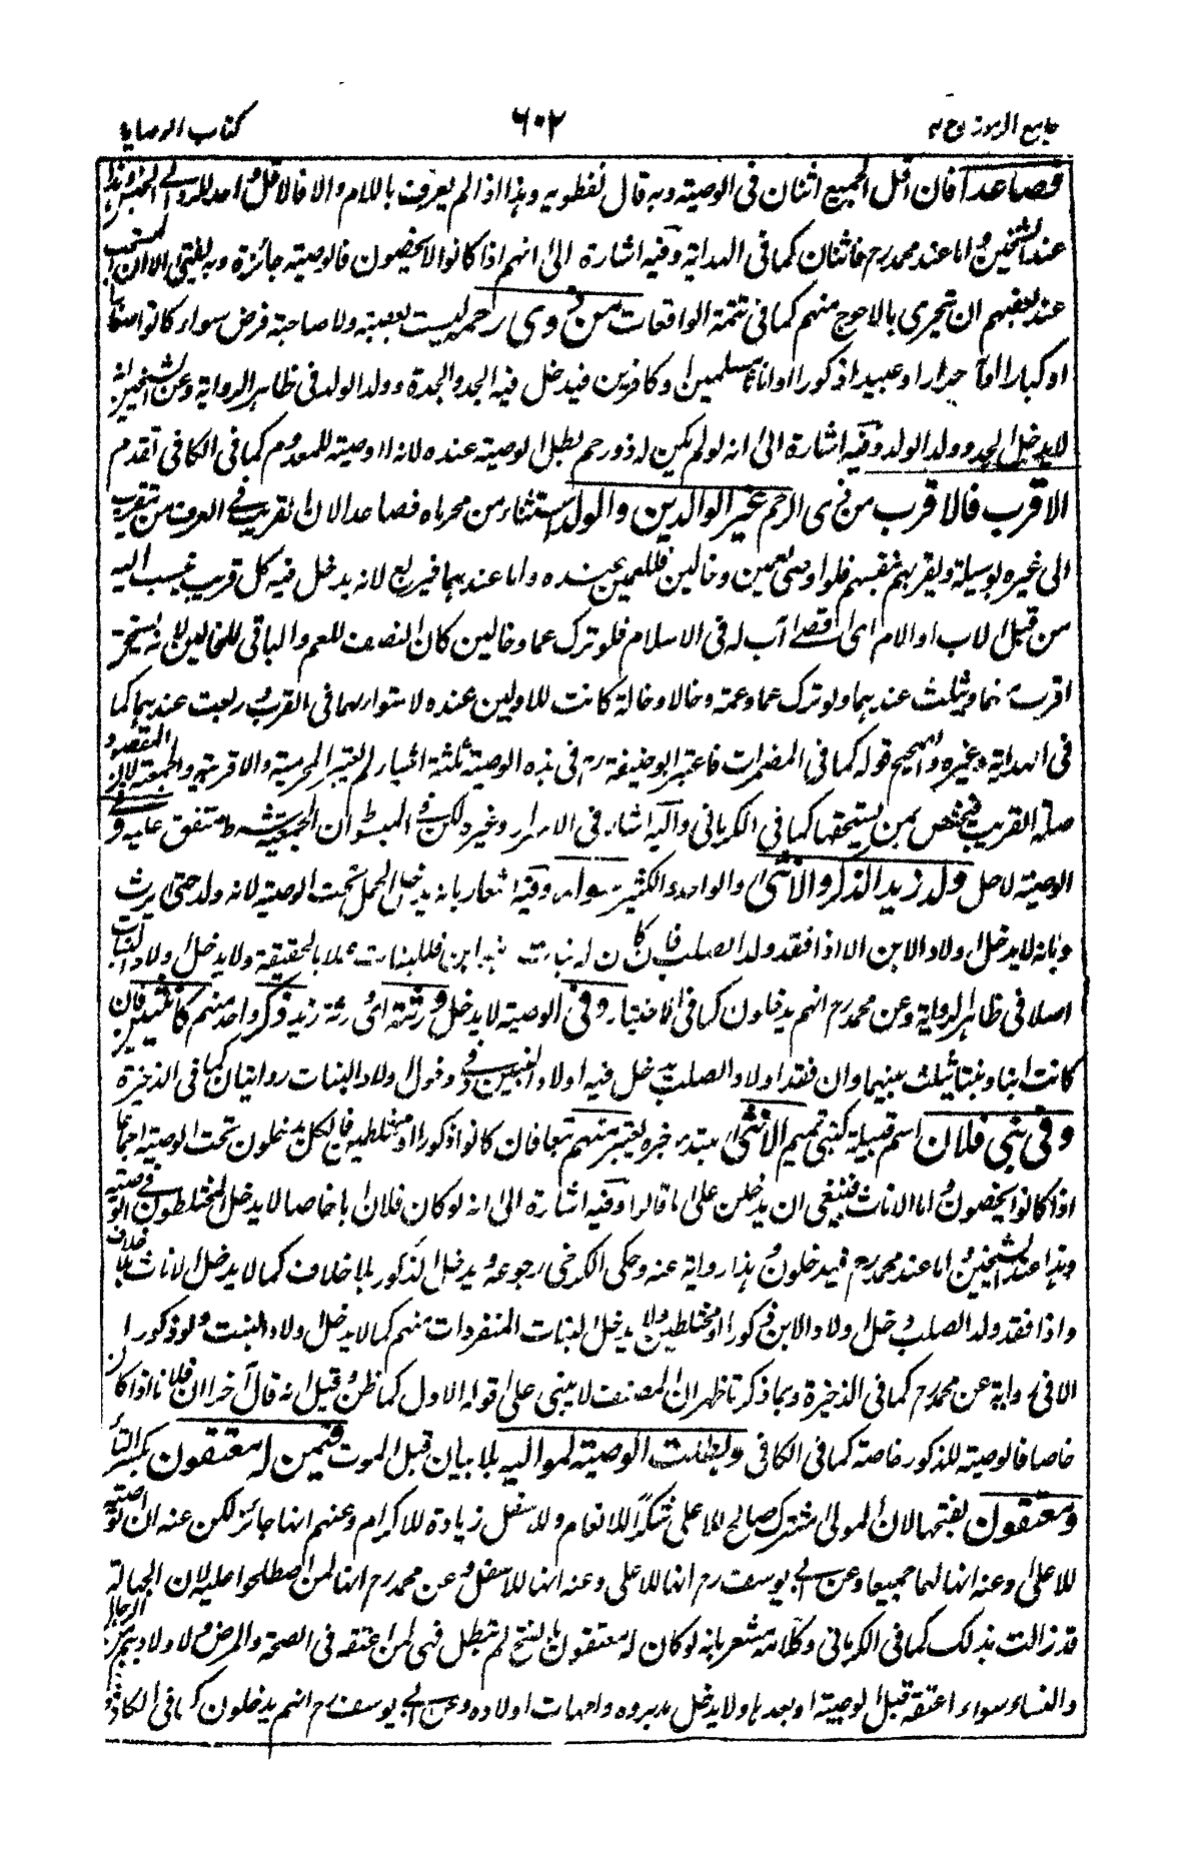 جامع الرموز ج ٢
٦٠٢
كتاب الوصايا
فصاعدا فان اقل الجميع اثنان فى الوصية وبه قال نفطويه وهذا اذا لم يعرف باللام والا فالاقل واحد للجنس وهذا
عند الشيخين واما عند محمد رح فاثنان كما فى الهداية وفيه اشارة الى انهم اذا كانوا لا يحصون فالوصية جائزة وبه يفتى الا ان المستحب
عند بعضهم ان تجرى بالاحوج منهم كما فى تتمة الواقعات من ذوى رحم ليست بعصبة ولا صاحبة فرض سواء كانوا صغارا
او كبارا احرارا او عبيدا ذكورا او اناثا مسلمين او كافرين فيدخل فيه الجد والجدة وولد الولد فى ظاهر الرواية وعن الشيخين انه
لا يدخل الجد وولد الولد وفيه اشارة الى انه لو لم يكن له ذو رحم بطل الوصية عنده لانه لا وصية للمعدوم كما فى الكافى تقدم
الاقرب فالاقرب من ذى الرحم غير الوالدين والولد استثناء من محرماه فصاعدا لان القريب فى العرف من يتقرب
الى غيره بوسيلة وتقربهم بنفسهم فلو اوصى لعمين وخالين فللعمين عنده واما عندهما فيربع لانه يدخل فيه كل قريب ينسب اليه
من قبل الاب او الام الى اقصى اب له فى الاسلام فلو ترك عما وخالين كان النصف للعم والباقى للخالين لانه يستحق
اقرب منهما ويثلث عندهما ولو ترك عما وعمة وخالا وخالة كانت للاولين عنده لاستوائهما فى القرب ربعت عندهما كما
فى الهداية وغيره والصحيح قوله كما فى المضمرات فاعتبر ابو حنيفة رح فى هذه الوصية ثلثة اشياء لم يعتبر المحرمية والاقربية والجمعية لان المقصود
صلة القريب فيختص بمن يستحقها كما فى الكرمانى واليه اشار فى الاسرار وغيره لكن فى المبسوط ان الجمعية شرط متفق عليه وفى
الوصية لاهل ولد زيد الذكر والانثى والواحد والكثير سواء وفيه اشعار بانه يدخل الحمل تحت الوصية لانه ولد حتى يرث
وبانه لا يدخل اولاد الابن الا اذا فقد ولد الصلب فان كان له بنات وابن فللبنات عملا بالحقيقة ولا يدخل اولاد البنات
اصلا فى ظاهر الرواية وعن محمد رح انهم يدخلون كما فى الاختيار وفى الوصية لا يدخل ورثته اى ورثة زيد ذكر واحد منهم كانثيين فان
كانت ابنا وبنتا يثلث بينهما وان فقد اولاد الصلب يدخل فيه اولاد البنين وفى دخول اولاد البنات روايتان كما فى الذخيرة
وفى بنى فلان اسم قبيلة كبنى تميم الانثى مبتدء خبره يعتبر منهم تبعا فان كانوا ذكورا او مختلطة فالكل يدخلون تحت الوصية اجماعا
اذا كانوا يحصون واما الاناث فينبغى ان يدخلن على ما قالوا وفيه اشارة الى انه لو كان فلان ابا خاصا لا يدخل المختلطون فى الوصية
وهذا عند الشيخين واما عند محمد رح فيدخلون وهذا رواية عنه وحكى الكرخى رجوعه ويدخل الذكور بلا خلاف كما لا يدخل الاناث بلا خلاف
واذا فقد ولد الصلب دخل اولاد الابن ذكورا او مختلطين ولا يدخل البنات المنفردات منهم كما لا يدخل اولاد البنت ولو ذكورا
الا فى رواية عن محمد رح كما فى الذخيرة وبما ذكرنا ظهر ان المصنف لا يبنى على قوله الاول كما ظن وقيل انه قال آخرا ان فلانا اذا كان
خاصا فالوصية للذكور خاصة كما فى الكافى وبطلت الوصية لمواليه بلا بيان قبل الموت فيمن له معتقون بكسر التاء
ومعتقون بفتحها لان المولى مشترك صالح للاعلى شكرا للانعام وللاسفل زيادة للاكرام وعنهم انها جائز لكن عنه ان الوصية
للاعلى وعنه انها لهما جميعا وعن ابى يوسف رح انها للاعلى وعنه انها للاسفل وعن محمد رح انها لمن اصطلحوا عليه لان الجهالة
قد زالت بذلك كما فى الكرمانى وكلامه مشعر بانه لو كان له معتقون بالفتح لم تبطل فهى لمن اعتقه فى الصحة والمرض ولاولادهم من الرجال
والنساء سواء اعتقه قبل الوصية او بعدها ولا يدخل مدبروه وامهات اولاده وعن ابى يوسف رح انهم يدخلون كما فى الكافى